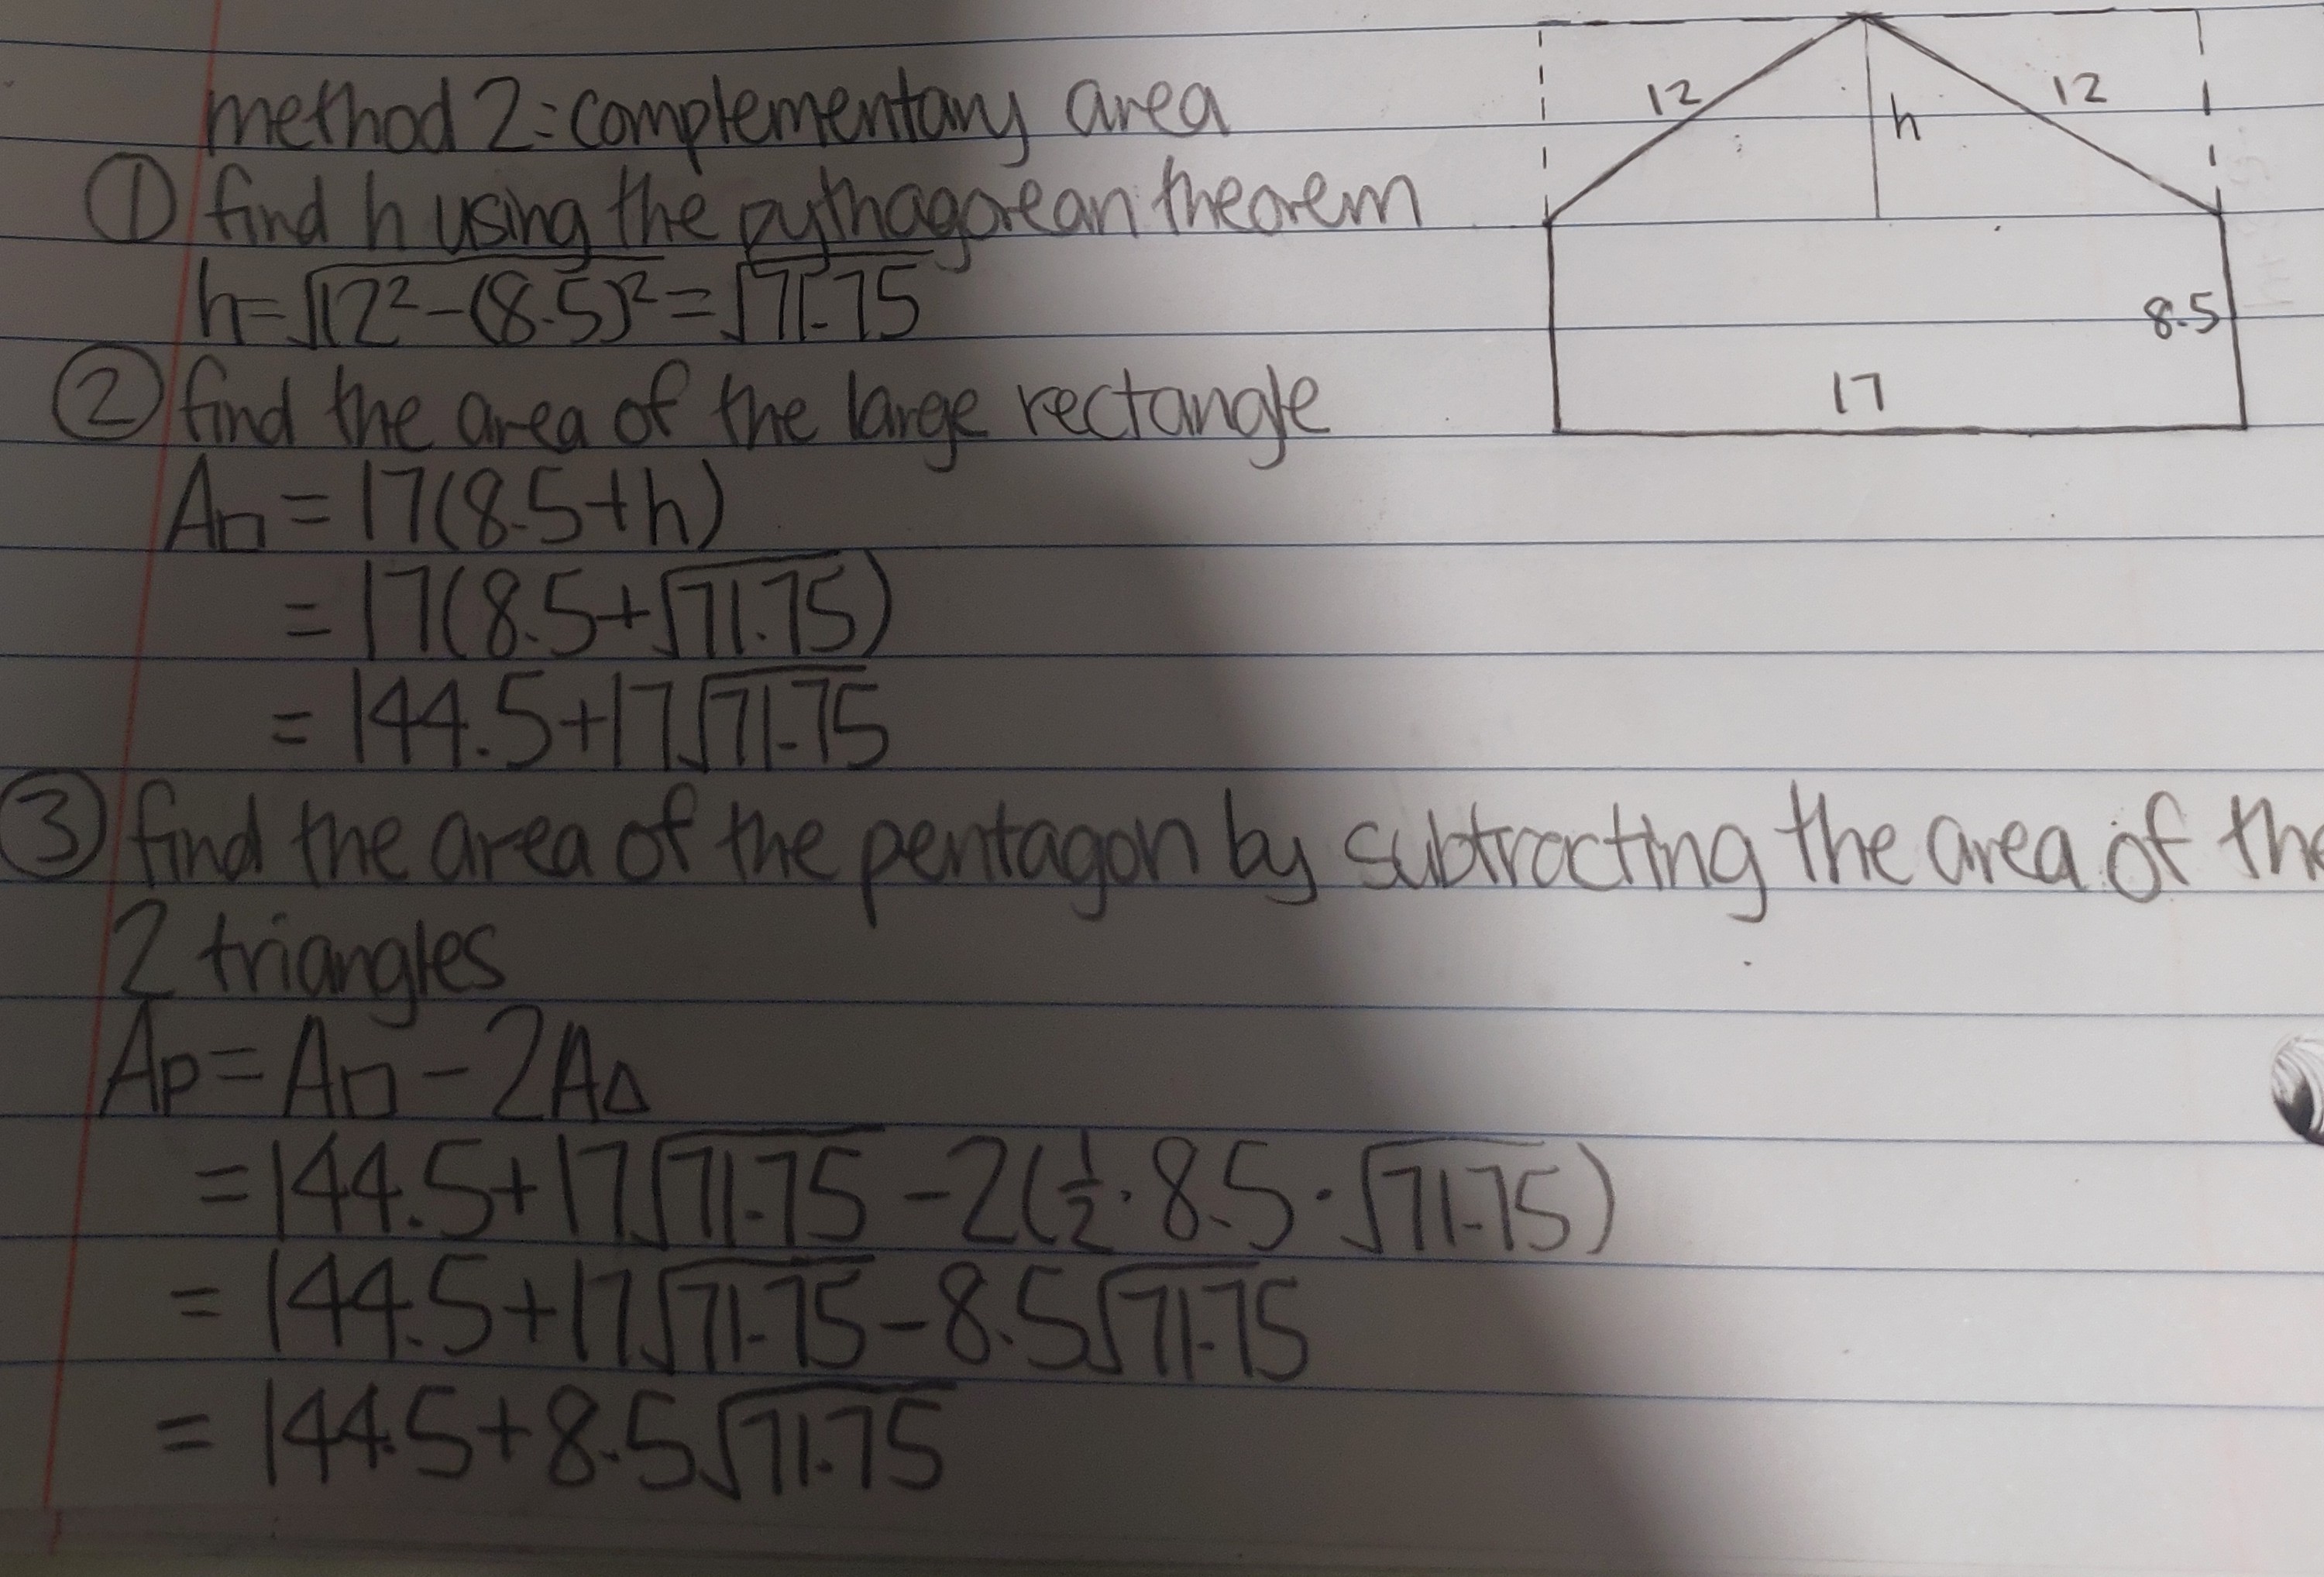 method 2: complementary area
① find h using the pythagorean theorem
h=√(12²-(8.5)²)=√71.75
② find the area of the large rectangle
A□ = 17(8.5+h)
= 17(8.5+√71.75)
= 144.5+17√71.75
③ find the area of the pentagon by subtracting the area of the
2 triangles
Ap = A□ - 2A△
= 144.5+17√71.75 - 2(1/2·8.5·√71.75)
= 144.5+17√71.75 - 8.5√71.75
= 144.5+8.5√71.75
12
12
h
8.5
17